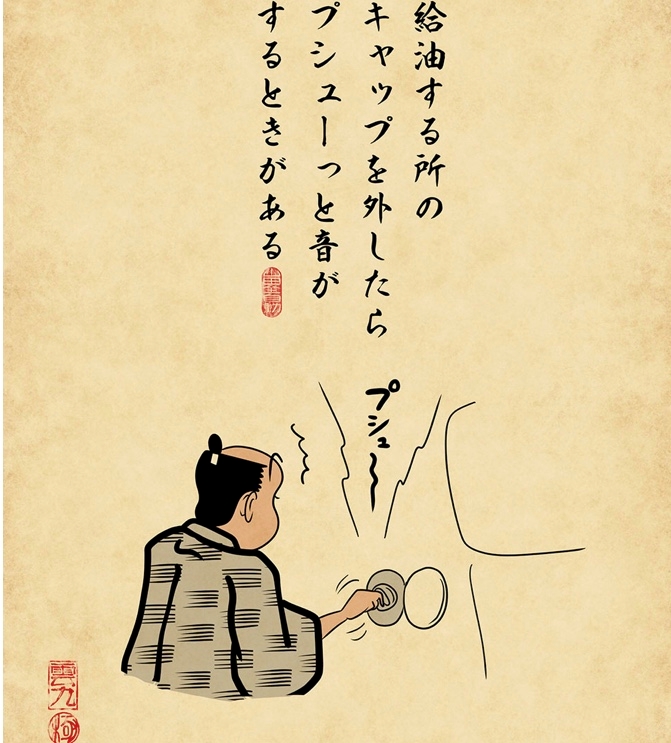 給油する所の
キャップを外したら
プシューっと音が
するときがある
プシュ〜